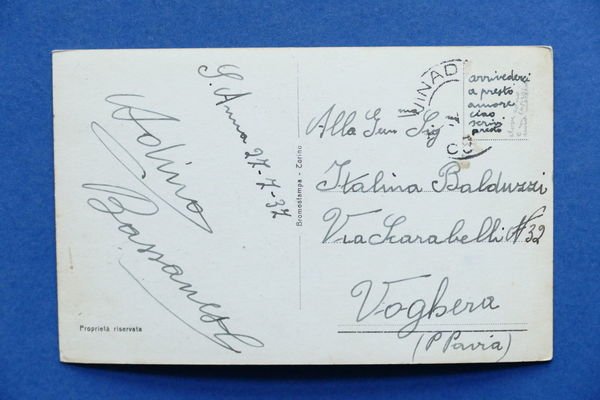 S. Anna 27-7-37
Adino
Bassanesi
Proprietà riservata
Bromostampa - Torino
VINAD
arrivederci
a presto
amore
ciao
scrivi
presto
Alla Gen.ma Sig.na
Italina Balduzzi
Via Scarabelli N 32
Voghera
(P Pavia)